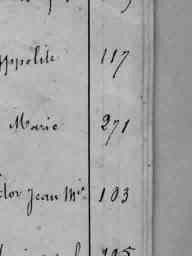 ppolite 117
Marie 271
tor Jean Mie 103